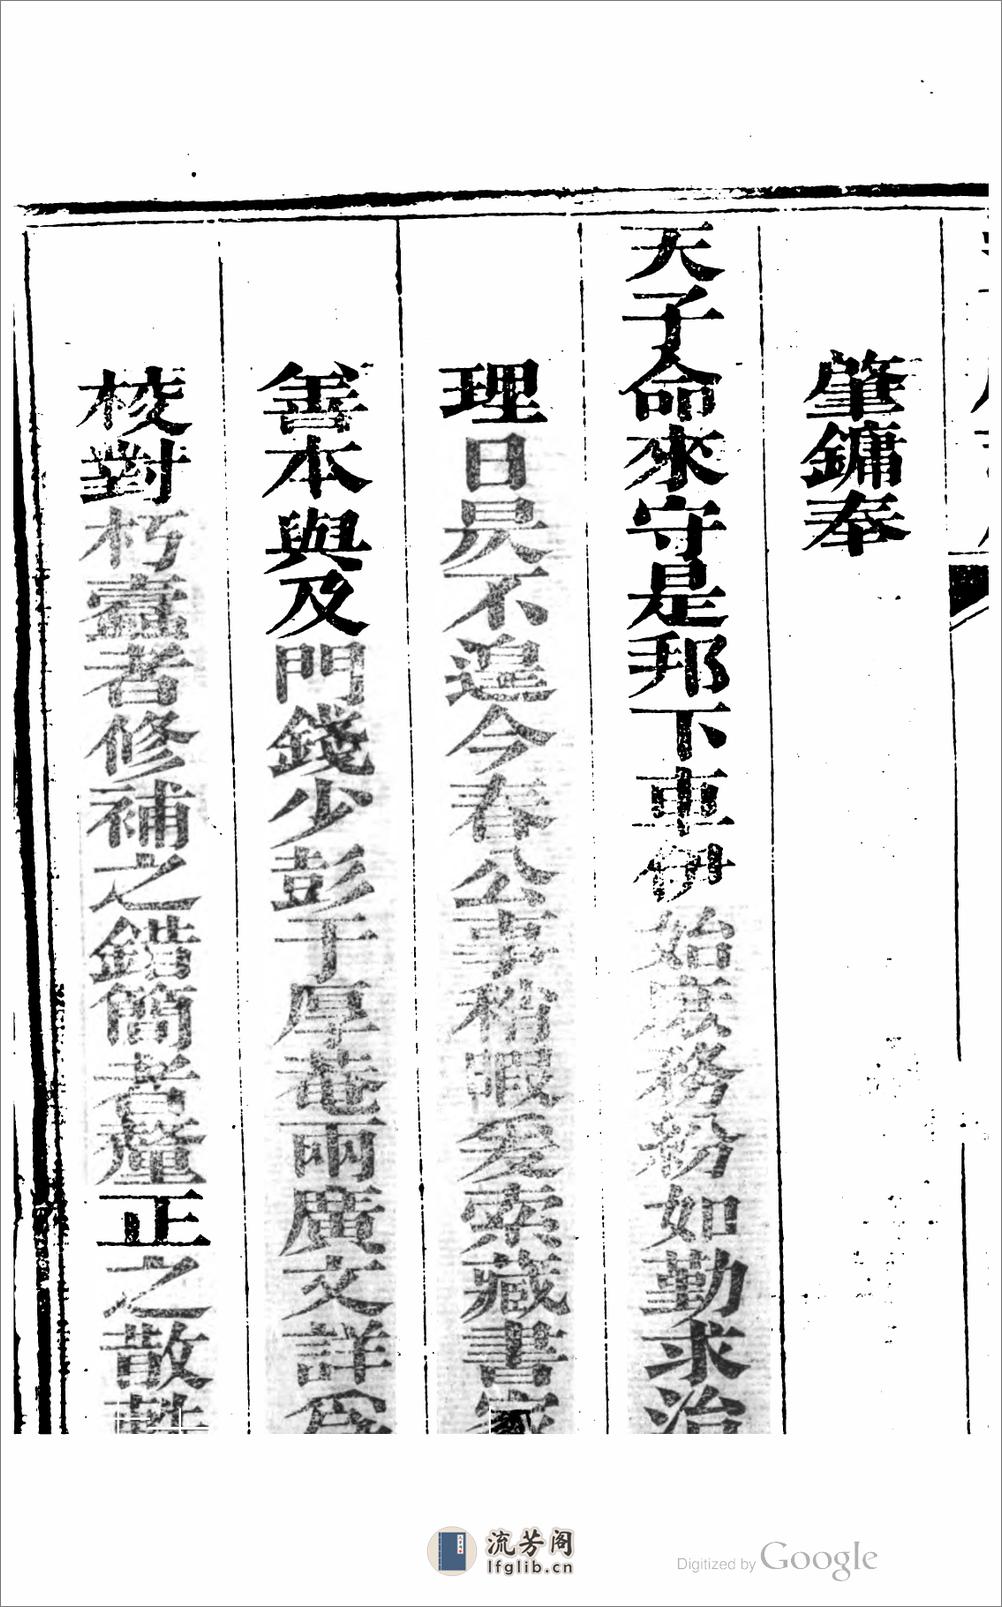 肇鏞奉
天子命來守是邦下車伊始庶務紛如勤求治
理日昃不遑今春公事稍暇爰索藏書家
善本與及門錢少彭于厚菴兩廣文詳爲
校對朽蠹者修補之錯簡者釐正之散
流芳阁
lfglib.cn
Digitized by Google